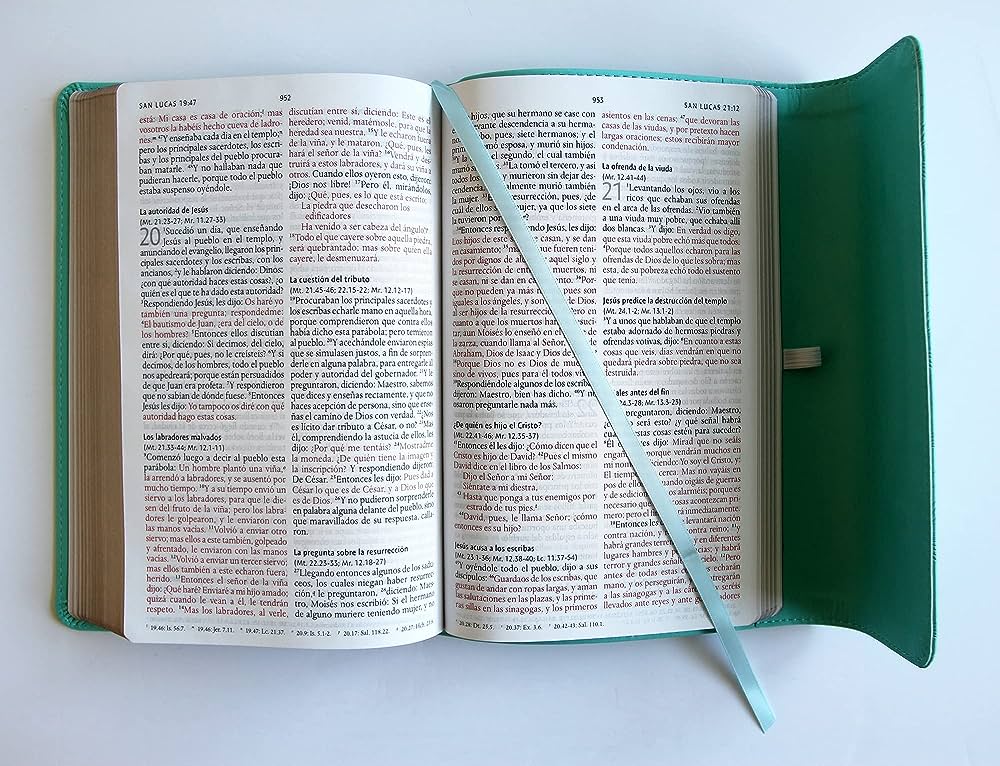 SAN LUCAS 19:47
952
está: Mi casa es casa de oración; mas
vosotros la habéis hecho cueva de ladro-
nes. Y enseñaba cada día en el templo;
pero los principales sacerdotes, los escri-
bas y los principales del pueblo procura-
ban matarle. Y no hallaban nada que
pudieran hacerle, porque todo el pueblo
estaba suspenso oyéndole.
La autoridad de Jesús
(Mt. 21:23-27; Mr. 11:27-33)
20 Sucedió un día, que enseñando
Jesús al pueblo en el templo, y
anunciando el evangelio, llegaron los prin-
cipales sacerdotes y los escribas, con los
ancianos, y le hablaron diciendo: Dinos:
¿con qué autoridad haces estas cosas?, ¿o
quién es el que te ha dado esta autoridad?
Respondiendo Jesús, les dijo: Os haré yo
también una pregunta; respondedme:
El bautismo de Juan, ¿era del cielo, o de
los hombres? Entonces ellos discutían
entre sí, diciendo: Si decimos, del cielo,
dirá: ¿Por qué, pues, no le creísteis? Y si
decimos, de los hombres, todo el pueblo
nos apedreará; porque están persuadidos
de que Juan era profeta. Y respondieron
que no sabían de dónde fuese. Entonces
Jesús les dijo: Yo tampoco os diré con qué
autoridad hago estas cosas.
Los labradores malvados
(Mt. 21:33-44; Mr. 12.1-11)
Comenzó luego a decir al pueblo esta
parábola: Un hombre plantó una viña,
la arrendó a labradores, y se ausentó por
mucho tiempo. Y a su tiempo envió un
siervo a los labradores, para que le die-
sen del fruto de la viña; pero los labradores
le golpearon, y le enviaron con
las manos vacías. Volvió a enviar otro
siervo; mas ellos a este también, golpeado
y afrentado, le enviaron con las manos
vacías. Volvió a enviar un tercer siervo;
mas ellos también a este echaron fuera,
herido. Entonces el señor de la viña
dijo: ¿Qué haré? Enviaré a mi hijo amado;
quizá cuando le vean a él, le tendrán
respeto. Mas los labradores, al verle,
discutían entre sí, diciendo: Este es el
heredero; venid, matémosle, para que la
heredad sea nuestra. Y le echaron fuera
de la viña, y le mataron. ¿Qué, pues, les
hará el señor de la viña? Vendrá y des-
truirá a estos labradores, y dará su viña a
otros. Cuando ellos oyeron esto, dijeron:
¡Dios nos libre! Pero él, mirándolos,
dijo: ¿Qué, pues, es lo que está escrito:
La piedra que desecharon los
edificadores
Ha venido a ser cabeza del ángulo?
Todo el que cayere sobre aquella piedra,
será quebrantado; mas sobre quien ella
cayere, le desmenuzará.
La cuestión del tributo
(Mt. 21.45-46; 22.15-22; Mr. 12.12-17)
Procuraban los principales sacerdotes y
los escribas echarle mano en aquella hora,
porque comprendieron que contra ellos
había dicho esta parábola; pero temieron
al pueblo. Y acechándole enviaron espías
que se simulasen justos, a fin de sorpren-
derle en alguna palabra, para entregarle al
poder y autoridad del gobernador. Y le
preguntaron, diciendo: Maestro, sabemos
que dices y enseñas rectamente, y que no
haces acepción de persona, sino que ense-
ñas el camino de Dios con verdad. ¿Nos
es lícito dar tributo a César, o no? Mas
él, comprendiendo la astucia de ellos, les
dijo: ¿Por qué me tentáis? Mostradme
la moneda. ¿De quién tiene la imagen y
la inscripción? Y respondiendo dijeron:
De César. Entonces les dijo: Pues dad a
César lo que es de César, y a Dios lo que
es de Dios. Y no pudieron sorprenderle
en palabra alguna delante del pueblo, sino
que maravillados de su respuesta, calla-
ron.
La pregunta sobre la resurrección
(Mt. 22.23-33; Mr. 12.18-27)
Llegando entonces algunos de los sadu-
ceos, los cuales niegan haber resurrec-
ción, le preguntaron, diciendo: Maes-
tro, Moisés nos escribió: Si el hermano
de alguno muriere teniendo mujer, y no
19.46: Is. 56.7. 19.46: Jer. 7.11. 19.47: Lc. 21.37. 20.9: Is. 5.1-2. 20.17: Sal. 118.22. 20.27: Hch. 23.8
953
SAN LUCAS 21:12
hijos, que su hermano se case con
levante descendencia a su hermano.
pues, siete hermanos; y el
esposa, y murió sin hijos.
el segundo, el cual también
La tomó el tercero, y así
y murieron sin dejar des-
murió también
la resurrección, pues, ¿de
cuál de ellos mujer, ya que los siete
la tuvieron por
Entonces respondiendo Jesús, les dijo:
Los hijos de este se casan, y se dan
en casamiento; mas los que fueren teni-
dos por dignos de aquel siglo y
la resurrección de entre los muertos, ni
se casan, ni se dan en
que no pueden ya más pues son
iguales a los ángeles, y son
al ser hijos de la resurrección. Pero en
cuanto a que los muertos han de resuci-
tar, aun Moisés lo enseñó en el
la zarza, cuando llama al Señor, Dios de
Abraham, Dios de Isaac y Dios de
Porque Dios no es Dios de
sino de vivos, pues para él todos viven.
Respondiéndole algunos de los escribas,
dijeron: Maestro, bien has dicho. Y no
osaron preguntarle nada más.
¿De quién es hijo el Cristo?
(Mt. 22.41-46; Mr. 12.35-37)
Entonces él les dijo: ¿Cómo dicen que el
Cristo es hijo de David? Pues el mismo
David dice en el libro de los Salmos:
Dijo el Señor a mi Señor:
Siéntate a mi diestra,
Hasta que ponga a tus enemigos por
estrado de tus pies.
David, pues, le llama Señor; ¿cómo
entonces es su hijo?
Jesús acusa a los escribas
(Mt. 23.1-36; Mr. 12.38-40; Lc. 11.37-54)
Y oyéndole todo el pueblo, dijo a sus
discípulos: Guardaos de los escribas, que
gustan de andar con ropas largas, y aman
las salutaciones en las plazas, y las prime-
ras sillas en las sinagogas, y los primeros
asientos en las cenas; que devoran las
casas de las viudas, y por pretexto hacen
largas oraciones; estos recibirán mayor
condenación.
La ofrenda de la viuda
(Mr. 12.41-44)
21 Levantando los ojos, vio a los
ricos que echaban sus ofrendas
en el arca de las ofrendas. Vio también
a una viuda muy pobre, que echaba allí
dos blancas. Y dijo: En verdad os digo,
que esta viuda pobre echó más que todos.
Porque todos aquellos echaron para las
ofrendas de Dios de lo que les sobra; mas
esta, de su pobreza echó todo el sustento
que tenía.
Jesús predice la destrucción del templo
(Mt. 24.1-2; Mr. 13.1-2)
Y a unos que hablaban de que el templo
estaba adornado de hermosas piedras
y ofrendas votivas, dijo: En cuanto a estas
cosas que veis, días vendrán en que no
quedará piedra sobre piedra, que no sea
destruida.
antes del fin
24.3-28; Mr. 13.3-23)
preguntaron, diciendo: Maestro,
será esto? ¿y qué señal habrá
estas cosas estén para suceder?
dijo: Mirad que no seáis
vendrán muchos en mi
nombre, diciendo: Yo soy el Cristo, y:
El tiempo cerca. Mas no vayáis en
pos de ellos. cuando oigáis de guerras
y de sediciones, no os alarméis; porque es
necesario que cosas acontezcan pri-
mero; pero el fin será inmediatamente.
Entonces les levantará nación
contra nación, y reino;
habrá grandes en diferentes
lugares hambres y y habrá
terror y grandes señales del cielo. Pero
antes de todas estas echarán
mano, y os perseguirán, y os entregarán
a las sinagogas y a las cárceles, y seréis
llevados ante reyes y ante gobernadores
20.28: Dt. 25.5. 20.37: Ex. 3.6. 20.42-43: Sal. 110.1.